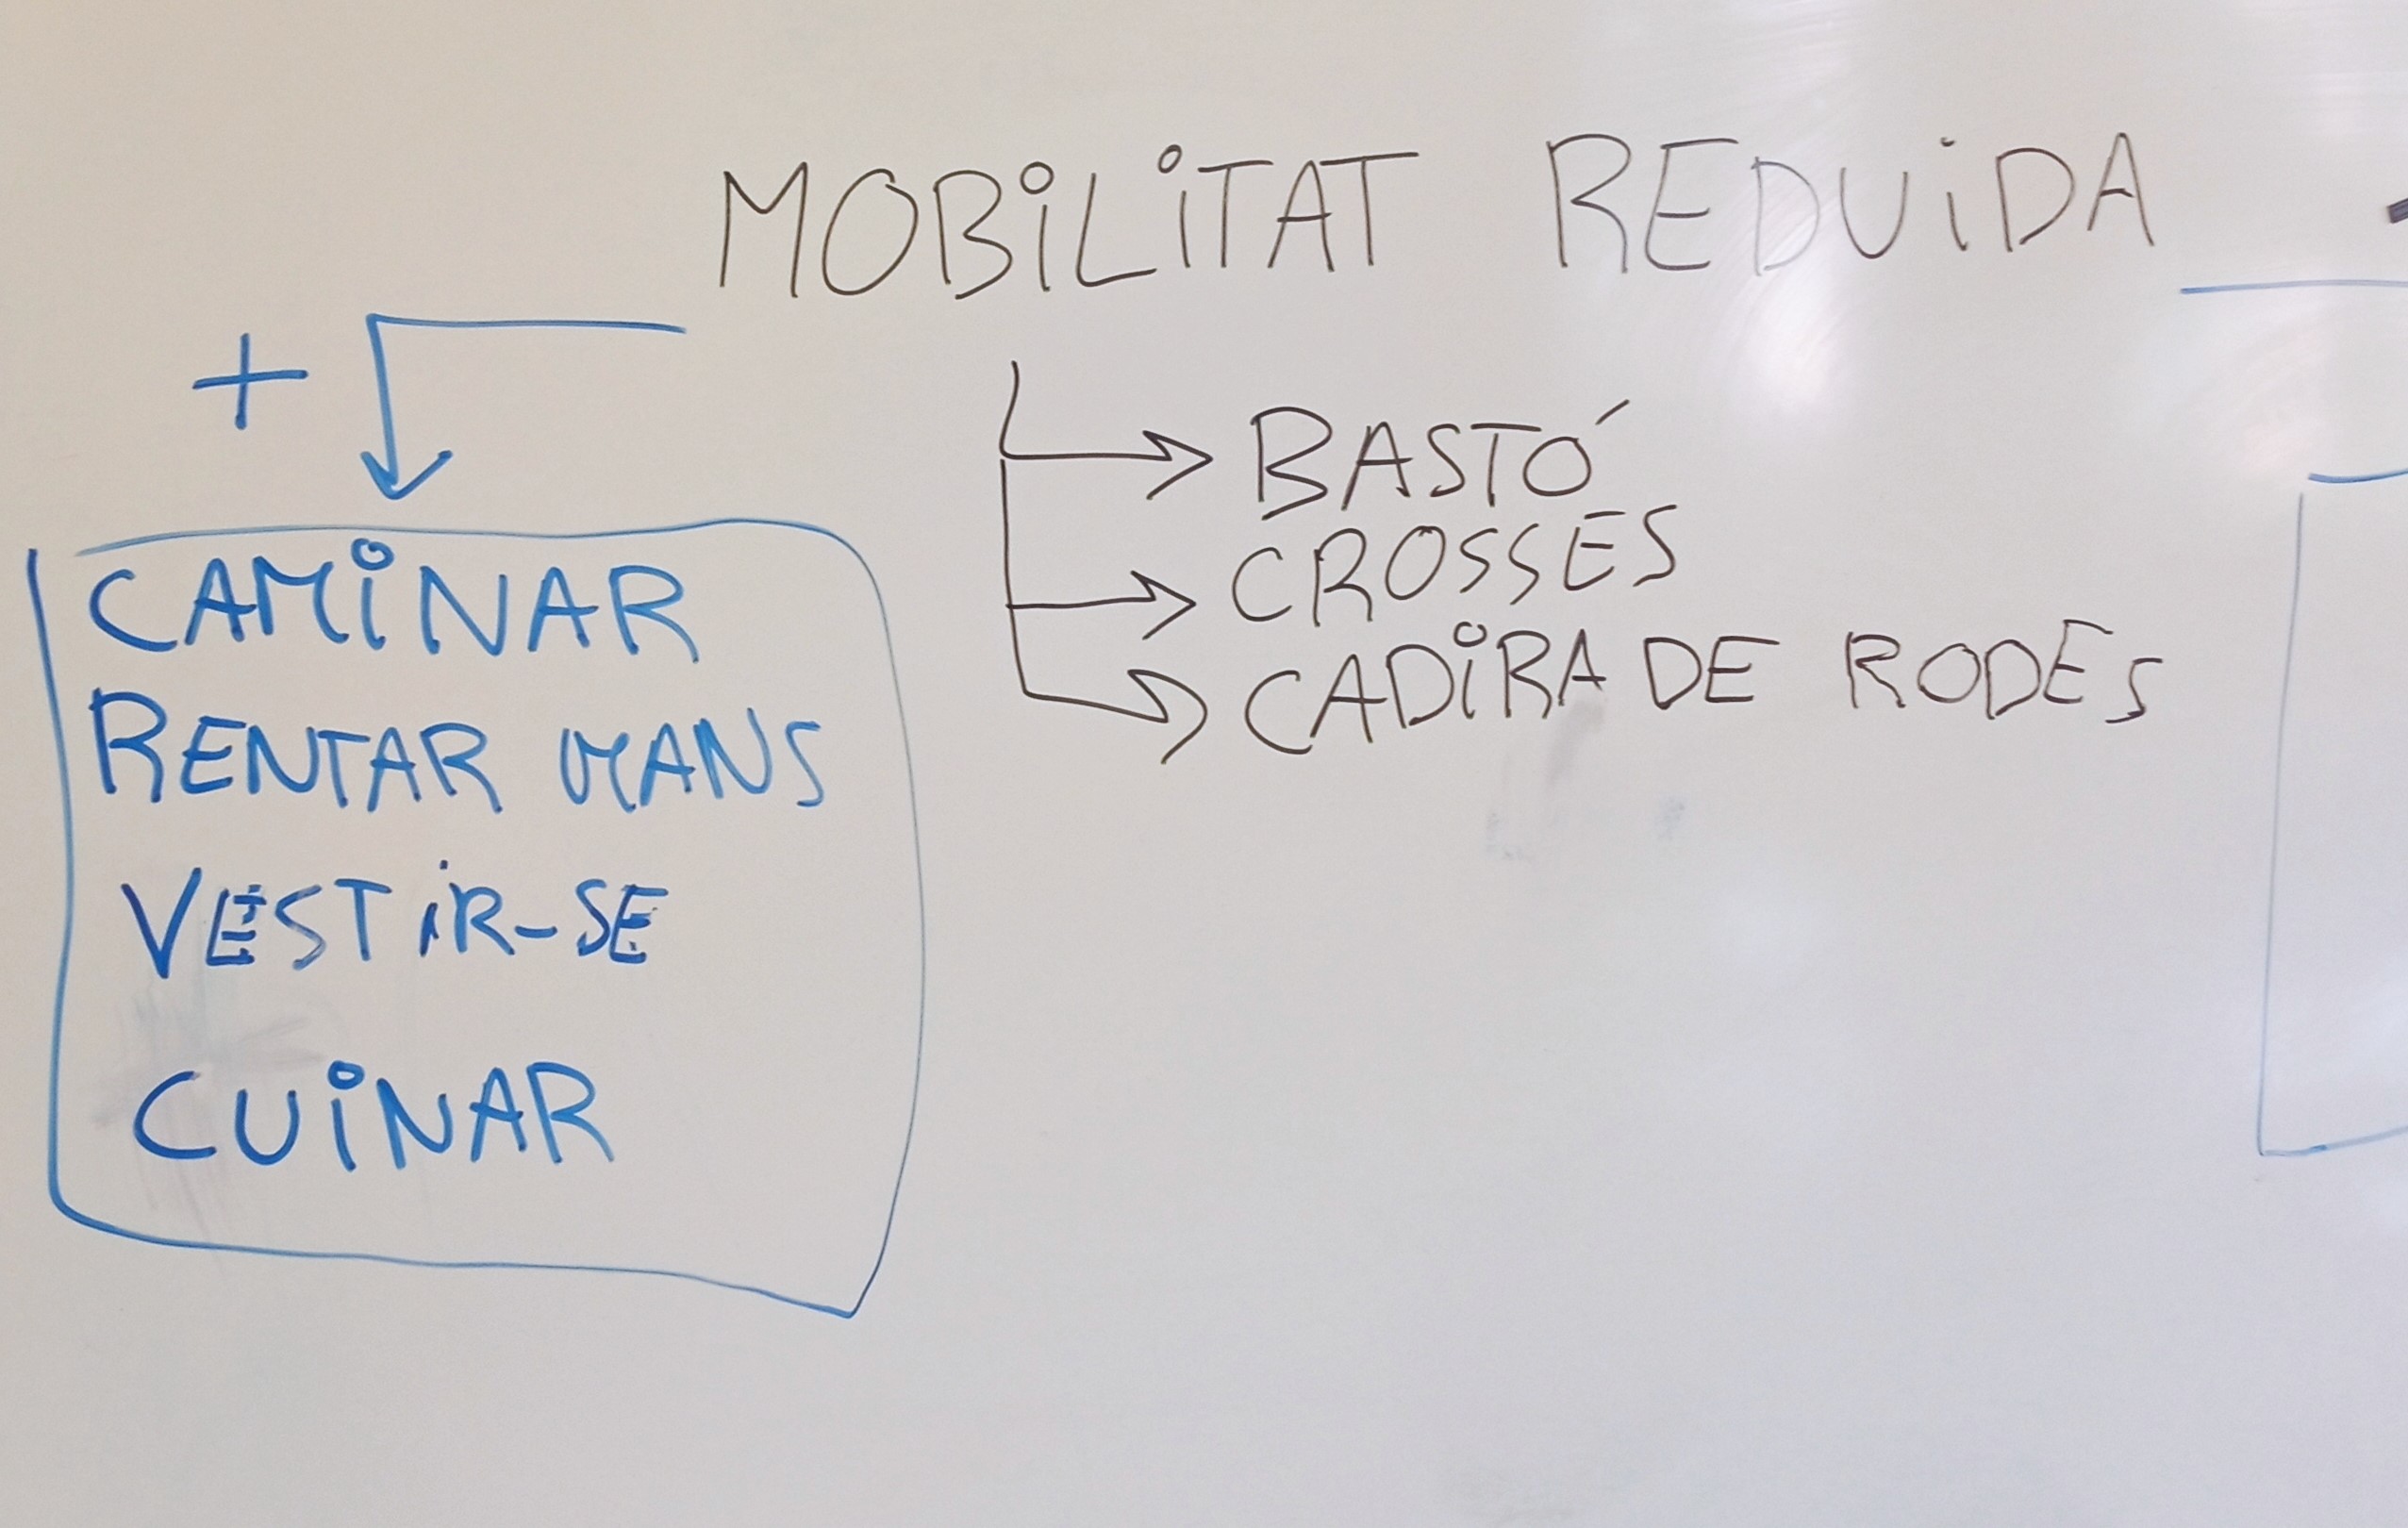 MOBILITAT REDUIDA
+
BASTÓ
CROSSES
CADIRA DE RODES
CAMINAR
RENTAR MANS
VESTIR-SE
CUINAR